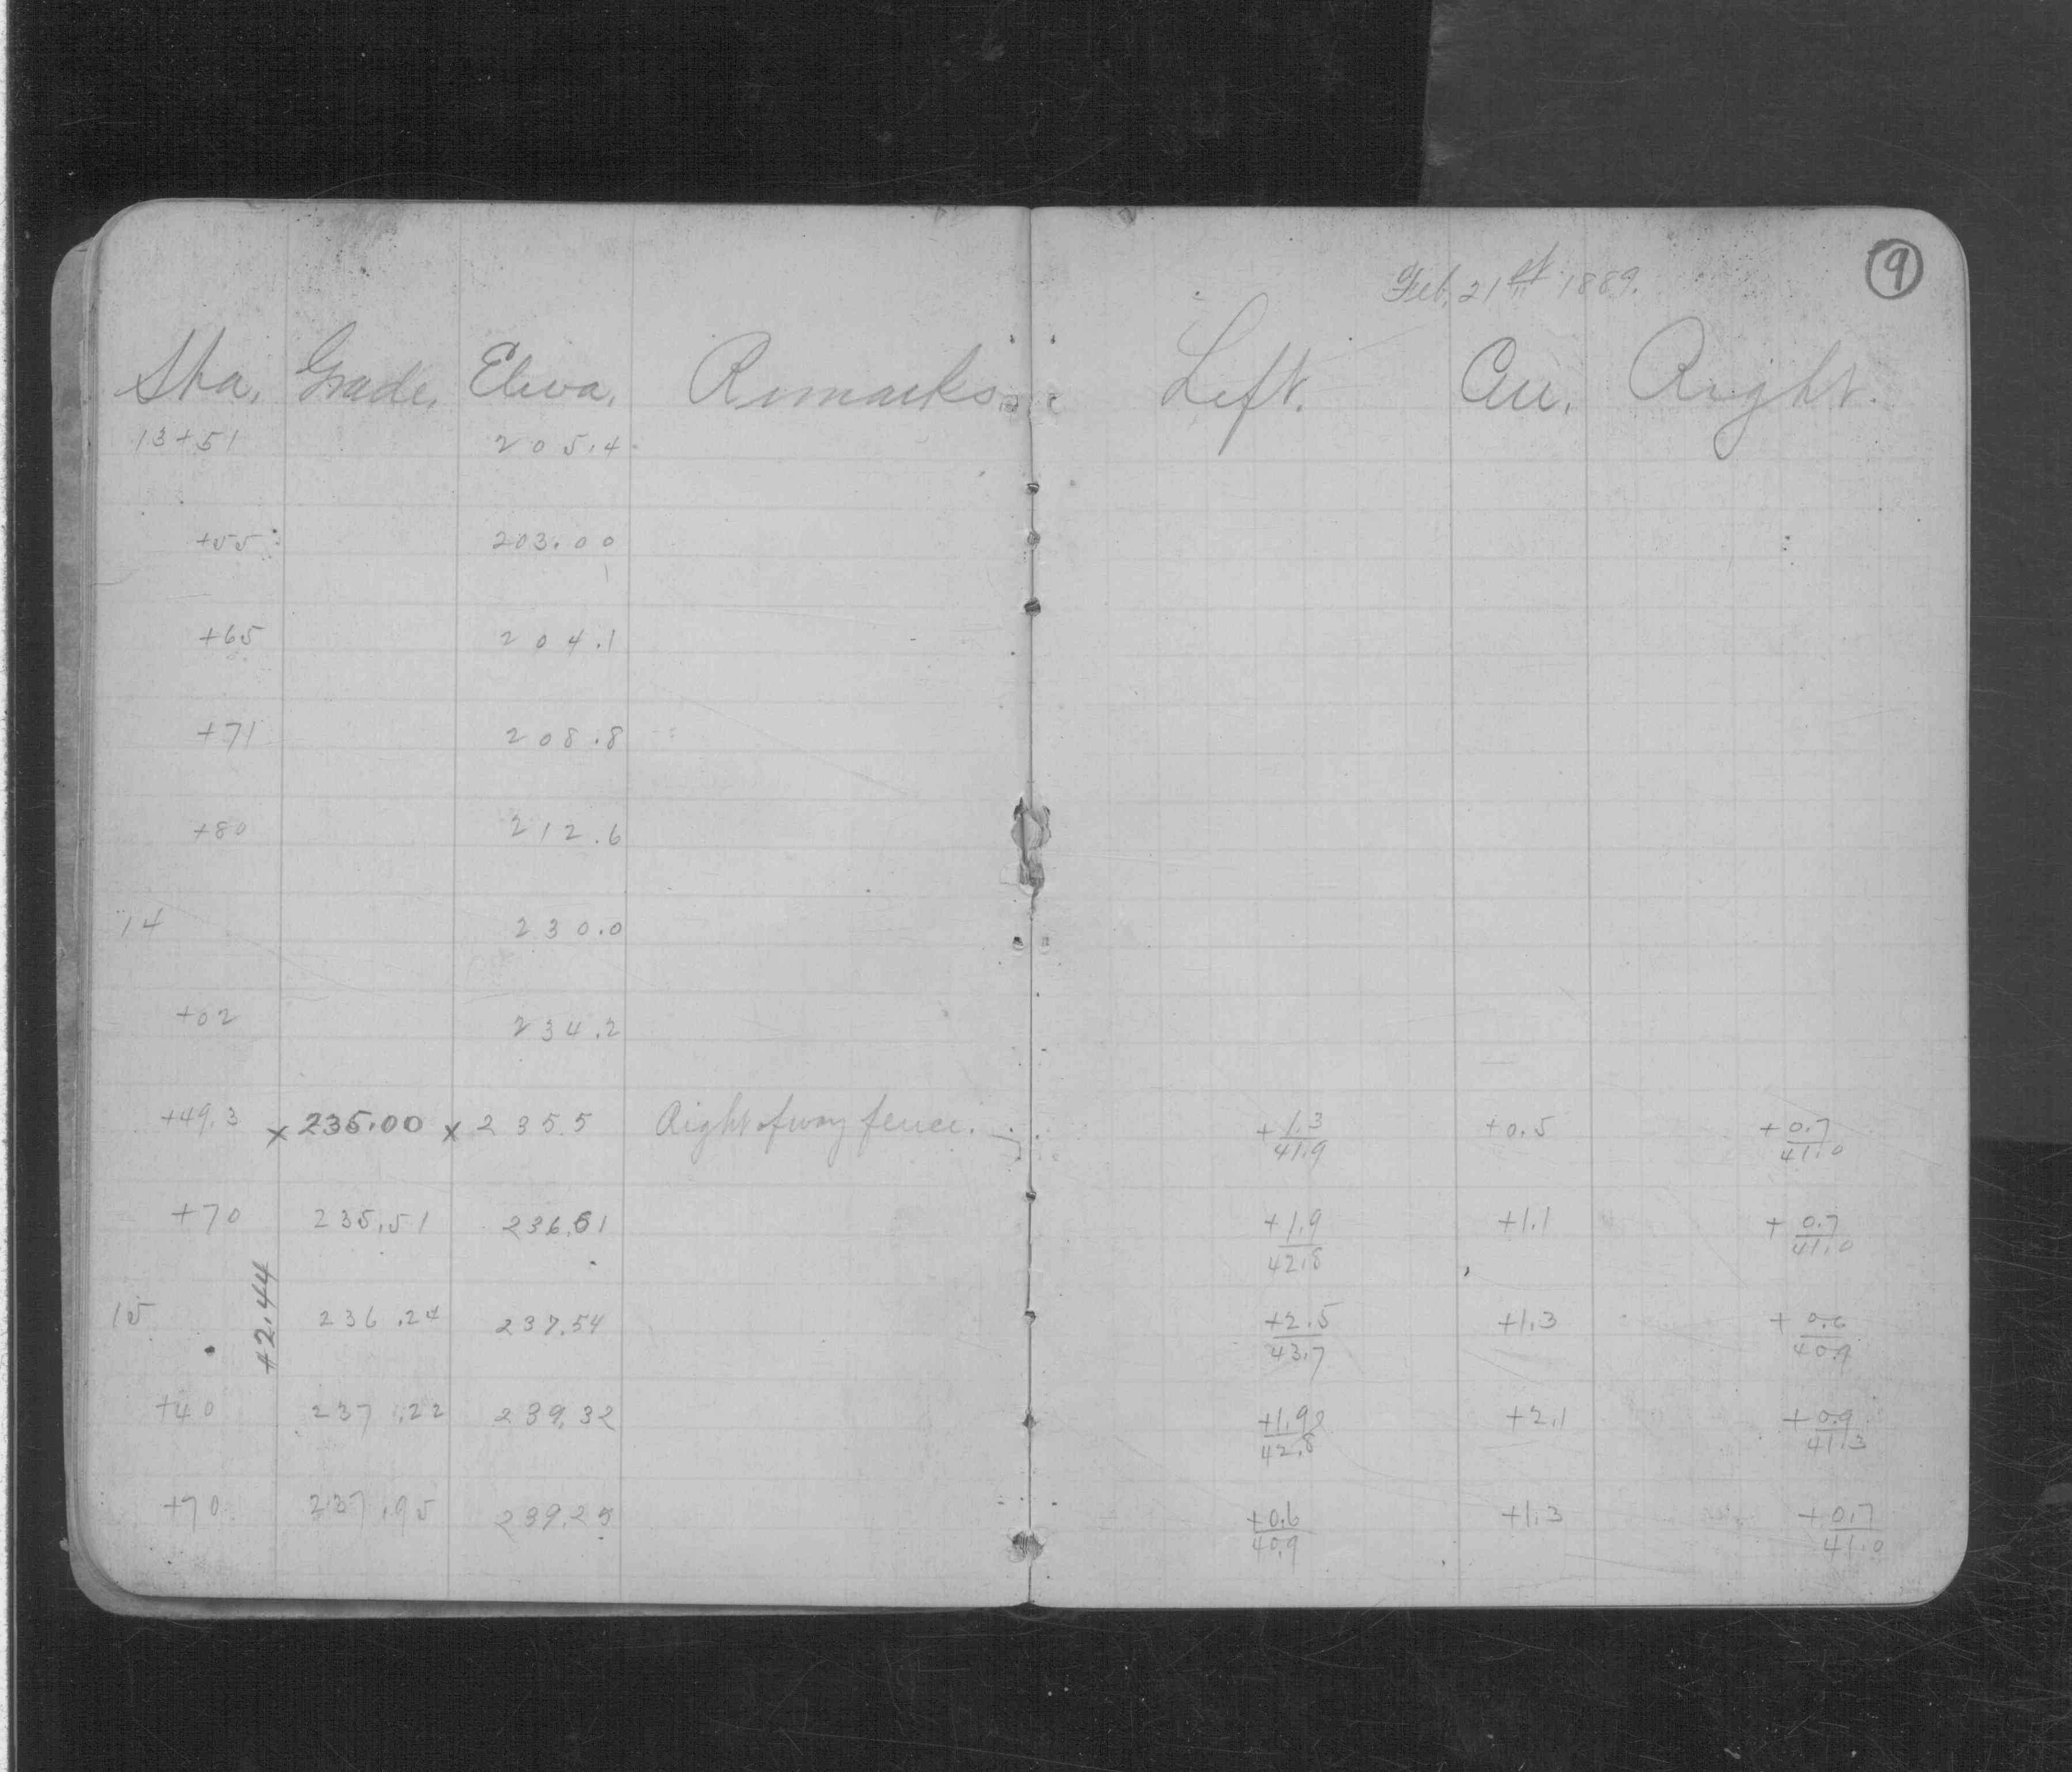 9
Feb. 21st 1889.
Sta. Grade. Eleva. Remarks. Left. Cen. Right.
13+51 205.4
+55 203.00
+65 204.1
+71 208.8
+80 212.6
14 230.0
+02 234.2
+49.3 x 235.00 x 235.5 Right of way fence. +1.3/41.9 +0.5 +0.7/41.0
+70 235.51 236.61 +1.9/42.8 +1.1 +0.7/41.0
+2.44
15 236.24 237.54 +2.5/43.7 +1.3 +0.6/40.9
+40 237.22 239.32 +1.9/42.8 +2.1 +0.9/41.3
+70 237.95 239.25 +0.6/40.9 +1.3 +0.7/41.0